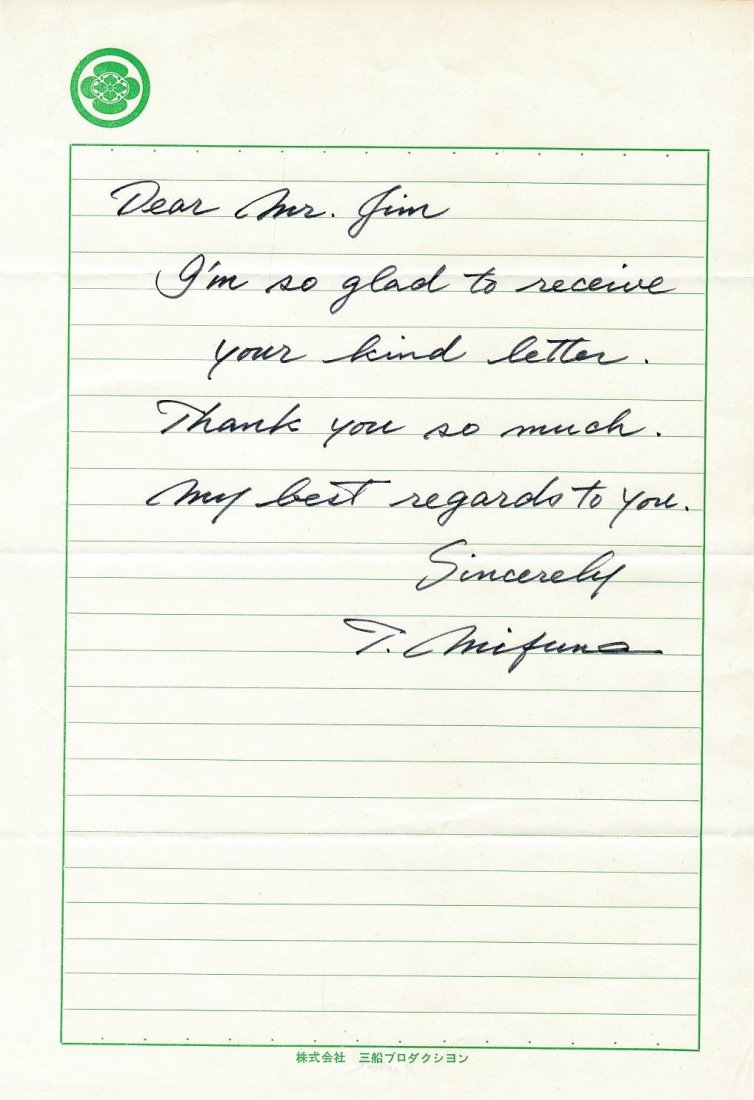 Dear Mr. Jim
I'm so glad to receive
your kind letter.
Thank you so much.
My best regards to you.
Sincerely
T. Mifune
株式会社 三船プロダクシヨン